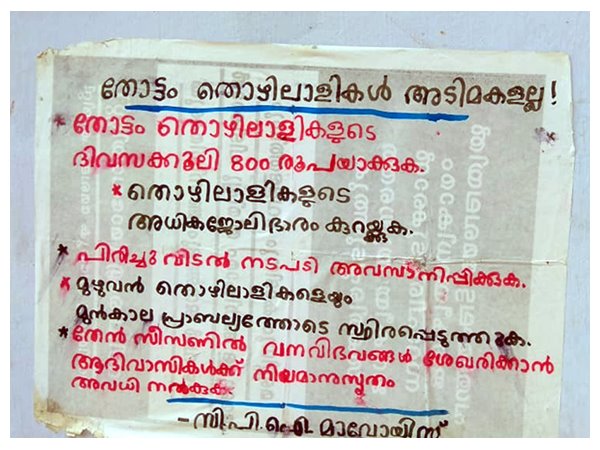 തോട്ടം തൊഴിലാളികൾ അടിമകളല്ല!
* തോട്ടം തൊഴിലാളികളുടെ
ദിവസക്കൂലി 800 രൂപയാക്കുക.
* തൊഴിലാളികളുടെ
അധികജോലിഭാരം കുറയ്ക്കുക.
* പിരിച്ചു വിടൽ നടപടി അവസാനിപ്പിക്കുക.
* മുഴുവൻ തൊഴിലാളികളെയും
മുൻകാല പ്രാബല്യത്തോടെ സ്ഥിരപ്പെടുത്തുക.
* തേൻ സീസണിൽ വനവിഭവങ്ങൾ ശേഖരിക്കാൻ
ആദിവാസികൾക്ക് നിയമാനുസൃതം
അവധി നൽകുക.
- സി.പി.ഐ. മാവോയിസ്റ്റ്